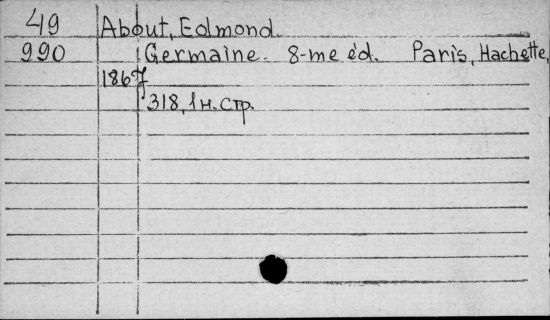 49 About, Edmond.
990 Germaine. 8-me éd. Paris, Hachette,
1867
318, 1 н. стр.